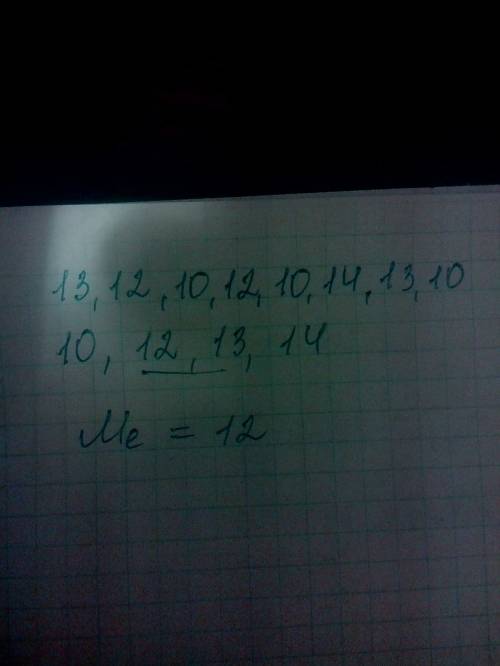 13, 12, 10, 12, 10, 14, 13, 10
10, 12, 13, 14
Me = 12